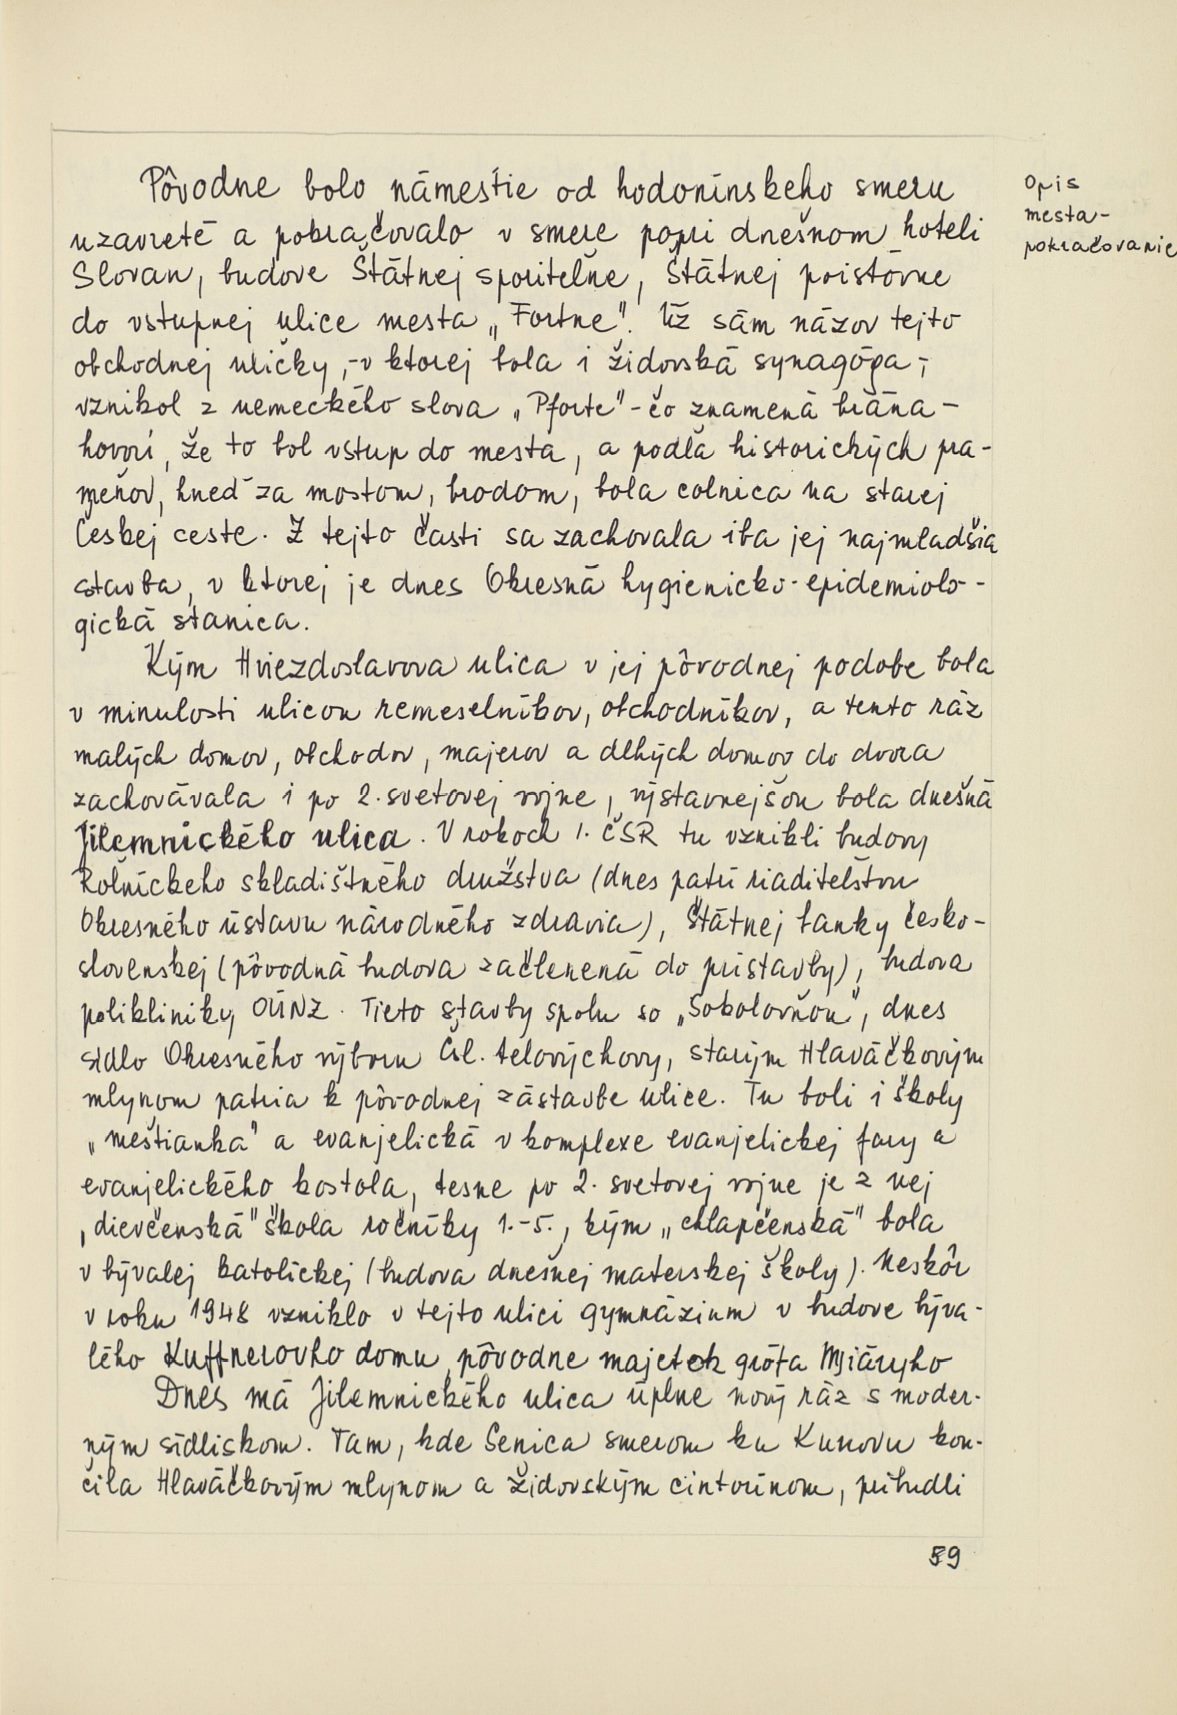 Pôvodne bolo námestie od hodonínskeho smeru
uzavreté a pokračovalo v smere popri dnešnom hoteli
Slovan, budove Štátnej sporiteľne, Štátnej poisťovne
do vstupnej ulice mesta „Fortne". Už sám názov tejto
obchodnej uličky, -v ktorej bola i židovská synagóga-,
vznikol z nemeckého slova „Pforte"-čo znamená brána-
hovorí, že to bol vstup do mesta, a podľa historických pra-
meňov, hneď za mostom, brodom, bola colnica na starej
českej ceste. Z tejto časti sa zachovala iba jej najmladšia
stavba, v ktorej je dnes Okresná hygienicko-epidemiolo-
gická stanica.
Kým Hviezdoslavova ulica v jej pôvodnej podobe bola
v minulosti ulicou remeselníkov, obchodníkov, a tento ráz
malých domov, obchodov, majerov a dlhých domov do dvora
zachovávala i po 2. svetovej vojne, výstavnejšou bola dnešná
Jilemnického ulica. V rokoch 1. ČSR tu vznikli budovy
Roľníckeho skladištného družstva (dnes patrí riaditeľstvu
Okresného ústavu národného zdravia), Štátnej banky česko-
slovenskej (pôvodná budova začlenená do prístavby), budova
polikliniky OÚNZ. Tieto stavby spolu so „Sokolovňou", dnes
sídlo Okresného výboru Čsl. telovýchovy, starým Hlaváčkovým
mlynom patria k pôvodnej zástavbe ulice. Tu boli i školy
„meštianka" a evanjelická v komplexe evanjelickej fary a
evanjelického kostola, tesne po 2. svetovej vojne je z nej
„dievčenská" škola ročníky 1.-5., kým „chlapčenská" bola
v bývalej katolíckej (budova dnešnej materskej školy). Neskôr
v roku 1948 vzniklo v tejto ulici gymnázium v budove býva-
lého Kuffnerovho domu, pôvodne majetok grófa Mjáryho
Dnes má Jilemnického ulica úplne nový ráz s moder-
ným sídliskom. Tam, kde Senica smerom ku Kunovu kon-
čila Hlaváčkovým mlynom a židovským cintorínom, pribudli
Opis
mesta-
pokračovanie
59